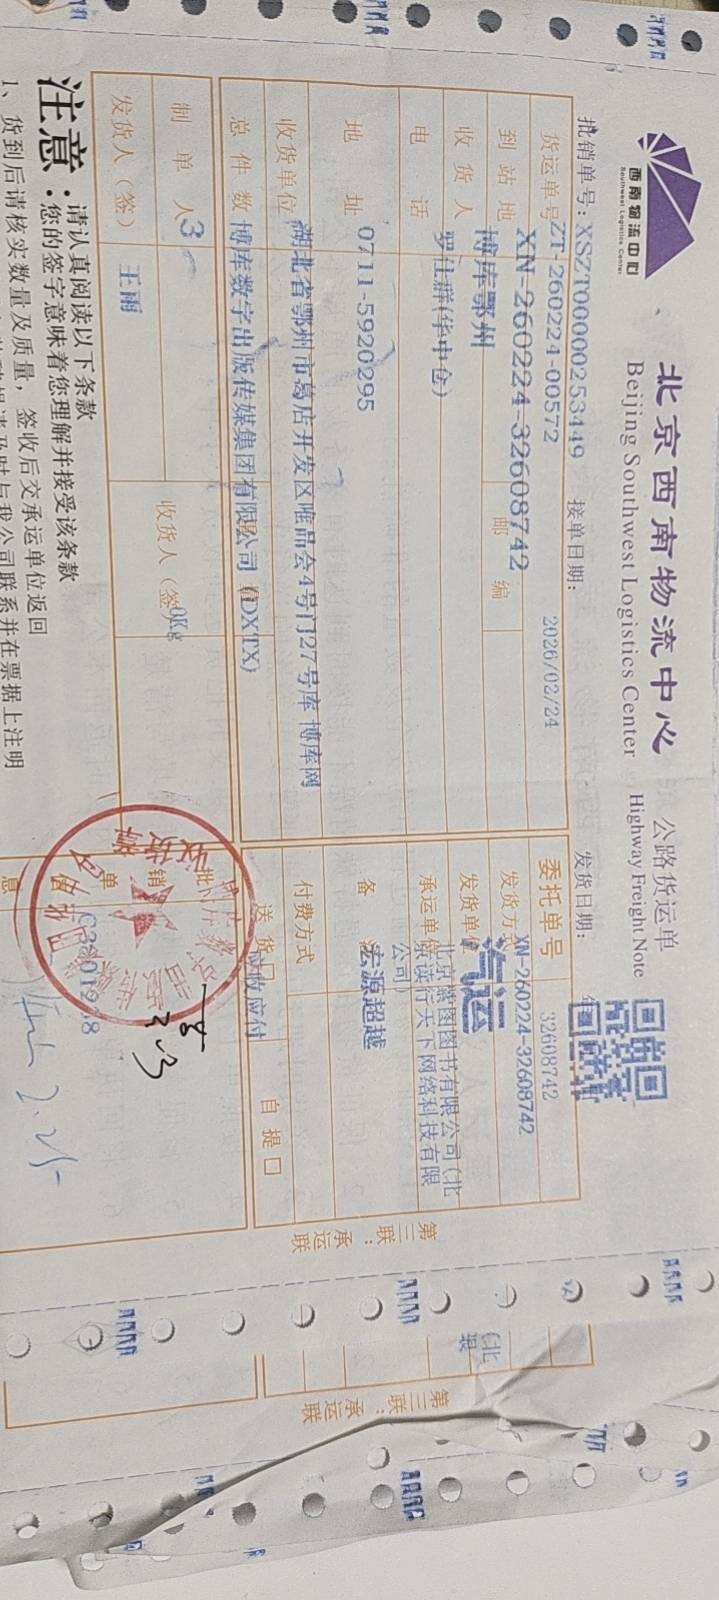 西南物流中心
Southwest Logistics Center
北京西南物流中心 公路货运单
Beijing Southwest Logistics Center Highway Freight Note
批销单号：XSZT00000253449 接单日期： 发货日期： 年
货运单号 ZT-260224-00572 2026/02/24
XN-260224-32608742
委托单号 32608742
XN-260224-32608742
到站地 博库鄂州 邮编
发货方式 汽运
收货人 罗仕群(华中仓)
发货单位 北京紫图图书有限公司(北京读行天下网络科技有限公司)
电话
承运单位
0711-5920295
备 宏源超越
地址 湖北省鄂州市葛店开发区唯品会4号门27号库 博库网
付费方式
收货单位 博库数字出版传媒集团有限公司 (DXTX)
送货口 应收应付 自提口
总件数 3
0Kg
制单人 王雨
收货人（签）
发货人（签）
批销单
收货章
第三联：承运联
第三联：承运联
注意：
请认真阅读以下条款
您的签字意味着您理解并接受该条款
1、货到后请核实数量及质量，签收后交承运单位返回
时与我公司联系并在票据上注明